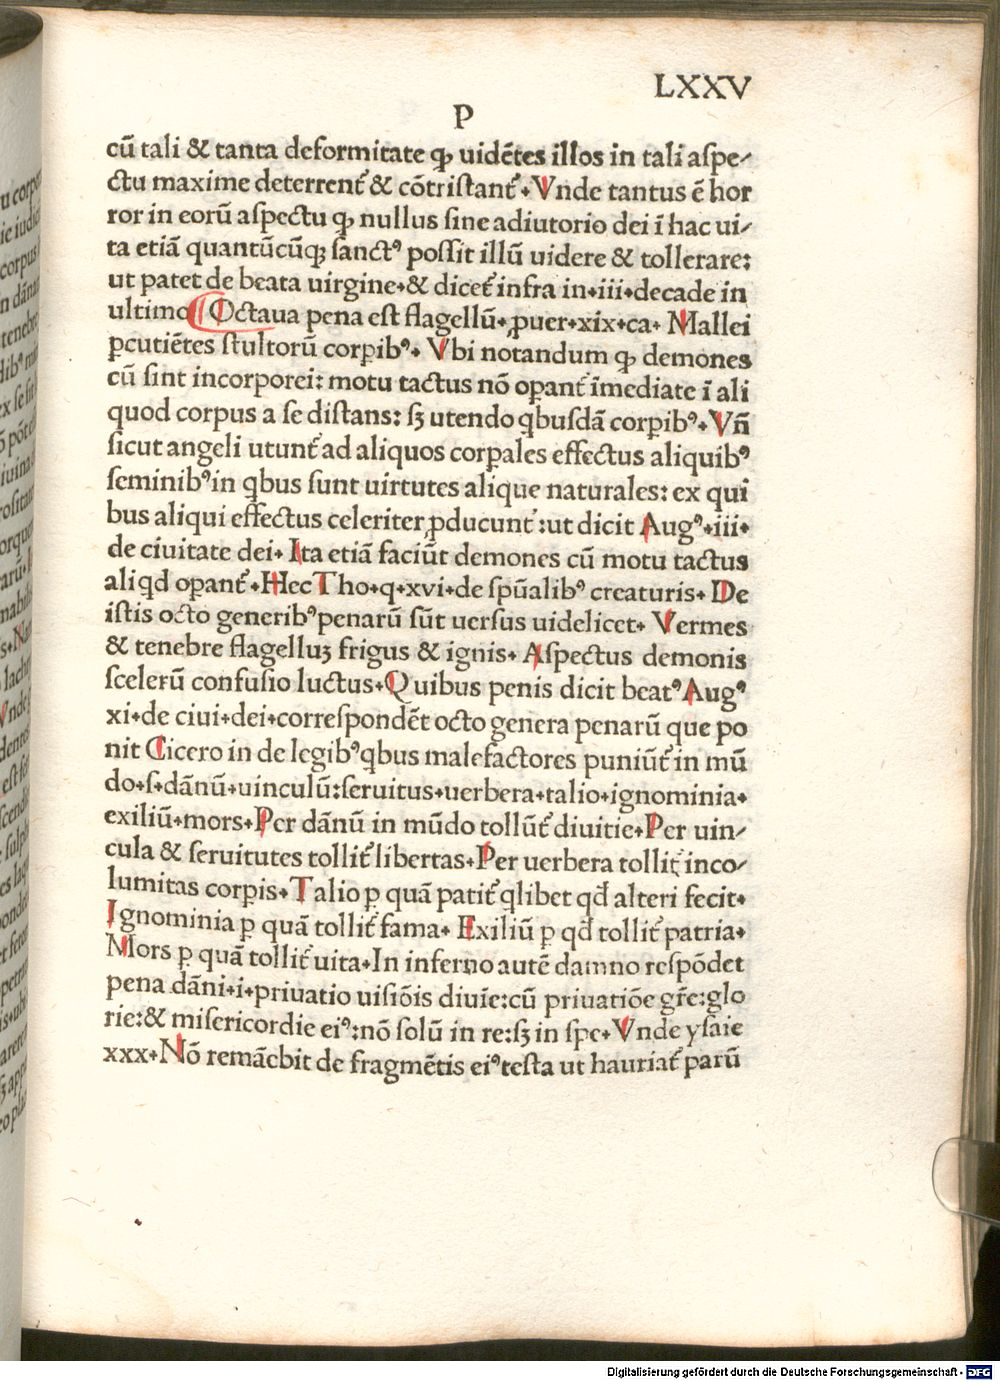 LXXV
P
cū tali & tanta deformitate ꝙ uidētes illos in tali aſpe⸗
ctu maxime deterrent᷑ & cōtriſtant᷑. Vnde tantus ē hor
ror in eorū aſpectu ꝙ nullus ſine adiutorio dei ī hac ui⸗
ta etiā quantūcūqꝫ ſanctꝰ poſſit illū uidere & tollerare:
ut patet de beata uirgine.& dicet᷑ infra in.iii.decade in
ultimo ¶ Octaua pena eſt flagellū.ꝓuer.xix.ca. Mallei
ꝑcutiētes ſtultorū corꝑibꝰ. Vbi notandum ꝙ demones
cū ſint incorporei: motu tactus nō oꝑant᷑ īmediate ī ali
quod corpus a ſe diſtans: ſꝫ utendo qbuſdā corꝑibꝰ.Vñ
ſicut angeli utunt᷑ ad aliquos corꝑales effectus aliquibꝰ
ſeminibꝰ in qbus ſunt uirtutes alique naturales: ex qui
bus aliqui effectus celeriter ꝓducunt᷑:ut dicit Augꝰ.iii.
de ciuitate dei. Ita etiā faciūt demones cū motu tactus
aliqd oꝑant᷑.Hec Tho.q.xvi.de ſpūalibꝰ creaturis. De
iſtis octo generibꝰ penarū ſūt uerſus uidelicet. Vermes
& tenebre flagelluꝫ frigus & ignis. Aſpectus demonis
ſcelerū confuſio luctus.Quibus penis dicit beatꝰ Augꝰ
xi.de ciui.dei.correſpondēt octo genera penarū que po
nit Cicero in de legibꝰ qbus malefactores puniūt᷑ in mū
do.ſ.dānū.uinculū:ſeruitus.uerbera.talio.ignominia.
exiliū.mors.Per dānū in mūdo tollūt᷑ diuitie.Per uin⸗
cula & ſeruitutes tollit᷑ libertas.Per uerbera tollit᷑ inco⸗
lumitas corꝑis.Talio ꝑ quā patit᷑ qlibet qd̄ alteri fecit.
Ignominia ꝑ quā tollit᷑ fama. Exiliū ꝑ qd̄ tollit᷑ patria.
Mors ꝑ quā tollit᷑ uita.In inferno autē damno reſpōdet
pena dāni.i.priuatio uiſiōis diuīe:cū priuatiōe gr̄e:glo
rie:& miſericordie eiꝰ:nō ſolū in re:ſꝫ in ſpe.Vnde yſaie
xxx.Nō remāebit de fragmētis eiꝰ teſta ut hauriat᷑ parū
Digitalisierung gefördert durch die Deutsche Forschungsgemeinschaft - DFG